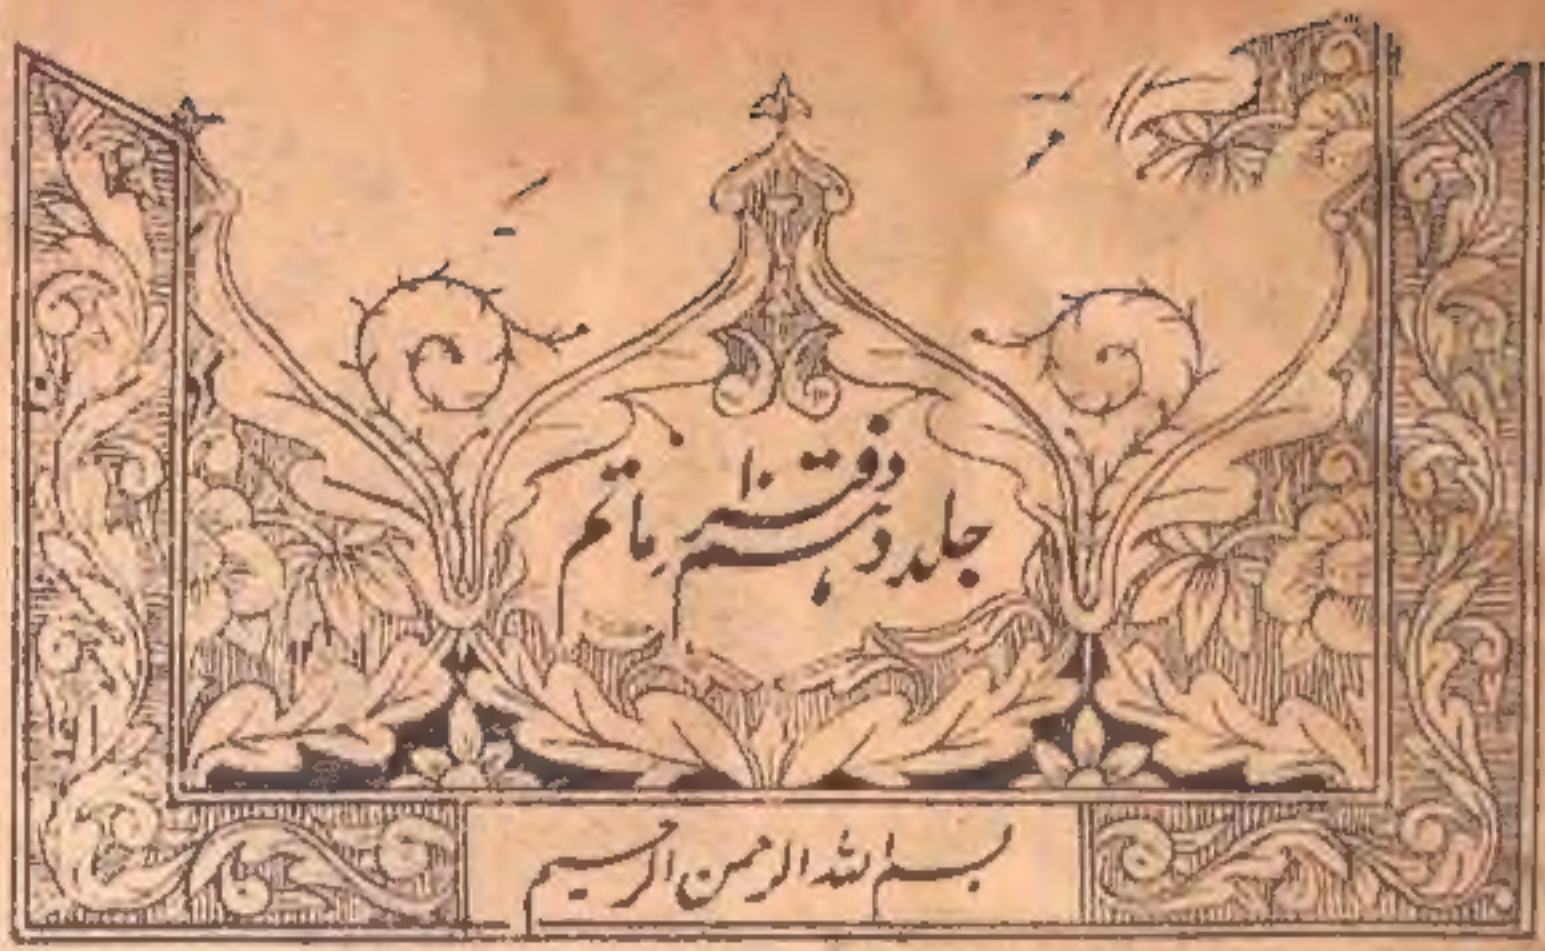 جلد دہم دفتر ماتم
بسم اللہ الرحمن الرحیم